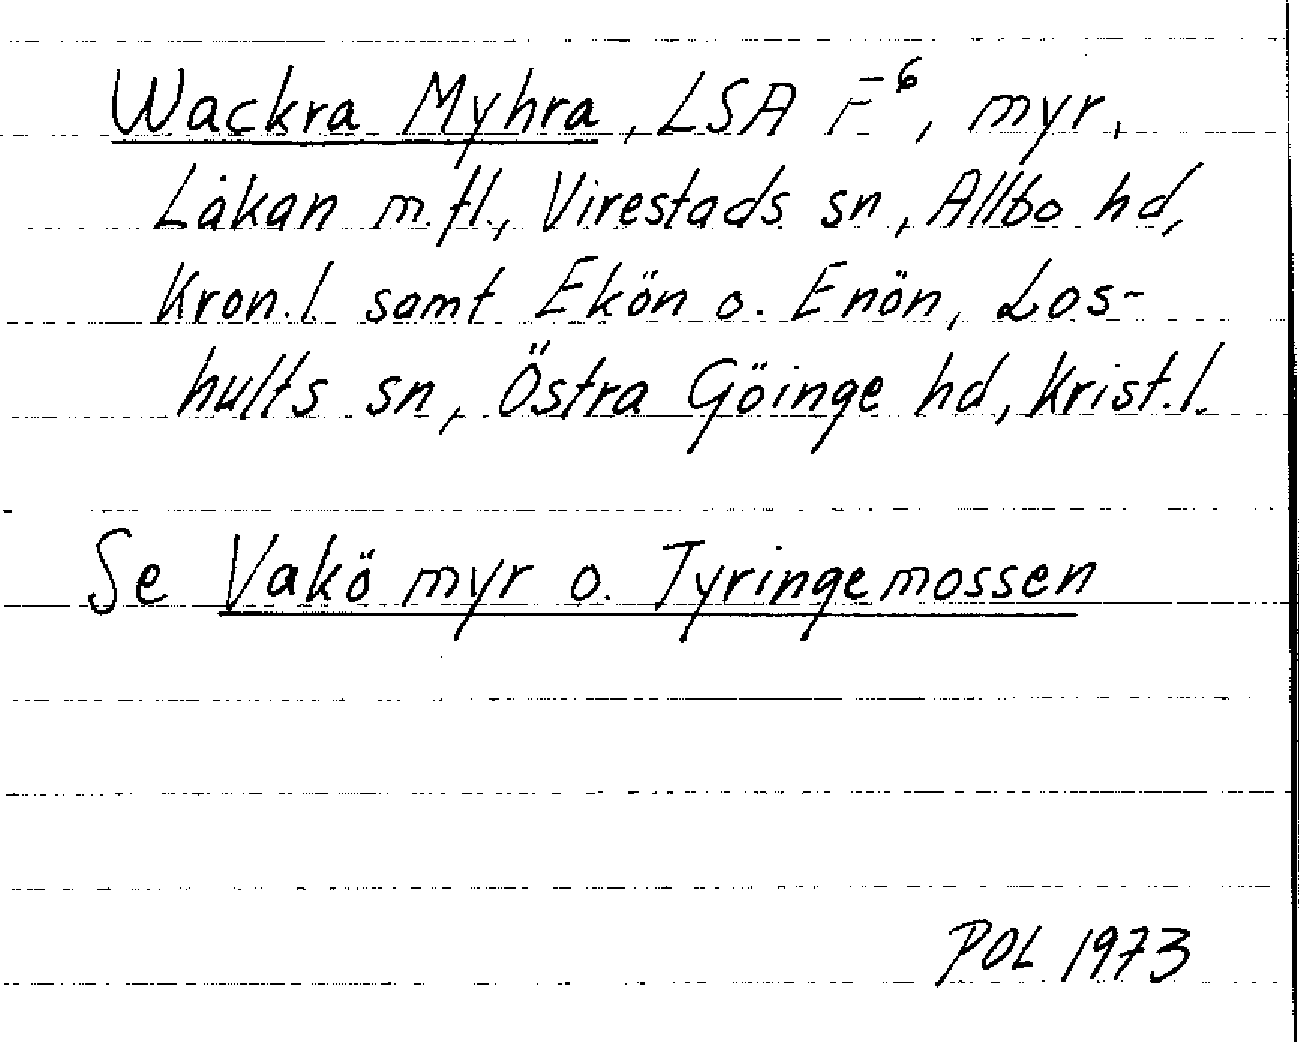 Wackra Myhra, LSA F⁶, myr,
Låkan m.fl., Virestads sn, Allbo hd,
Kron.l. samt Ekön o. Enön, Los-
hults sn, Östra Göinge hd, Krist.l.
Se Vakö myr o. Tyringemossen
POL 1973